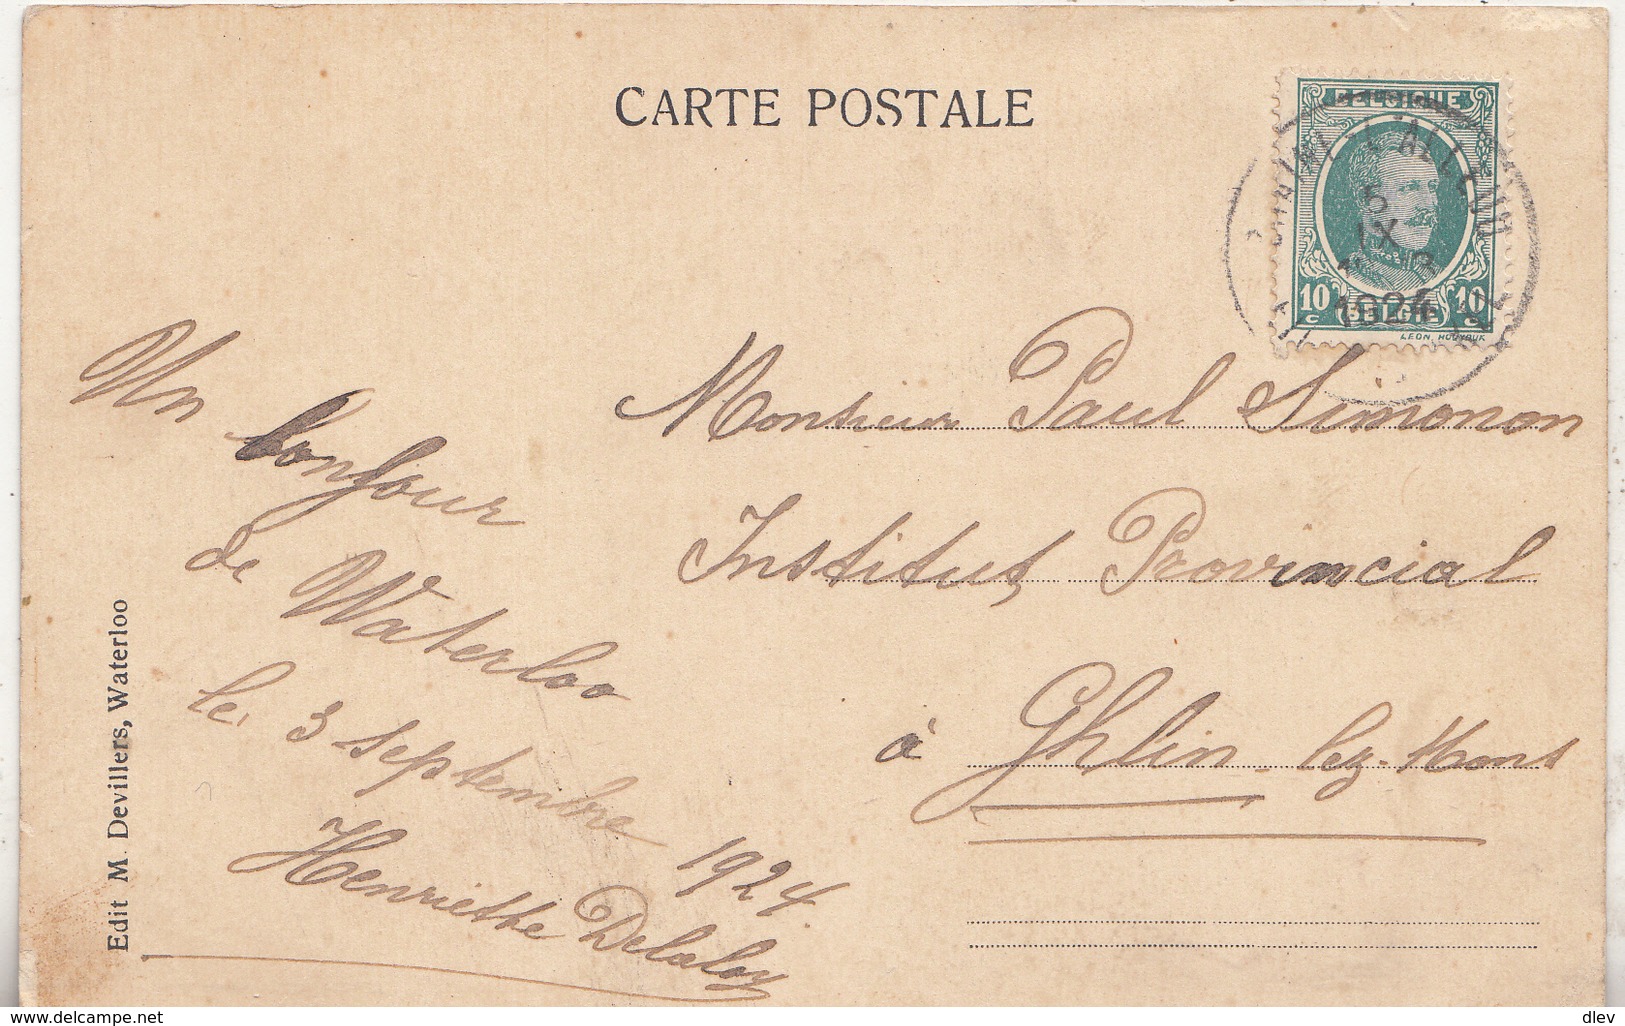 CARTE POSTALE
BELGIQUE
5
IX
1924
10 c BELGIE 10 c
Un bonjour
de Waterloo
le 3 septembre 1924
Henriette Delaloy
Monsieur Paul Simonon
Institut Provincial
à Ghlin-lez-Mons
Edit M. Devillers, Waterloo
www.delcampe.net
dlev